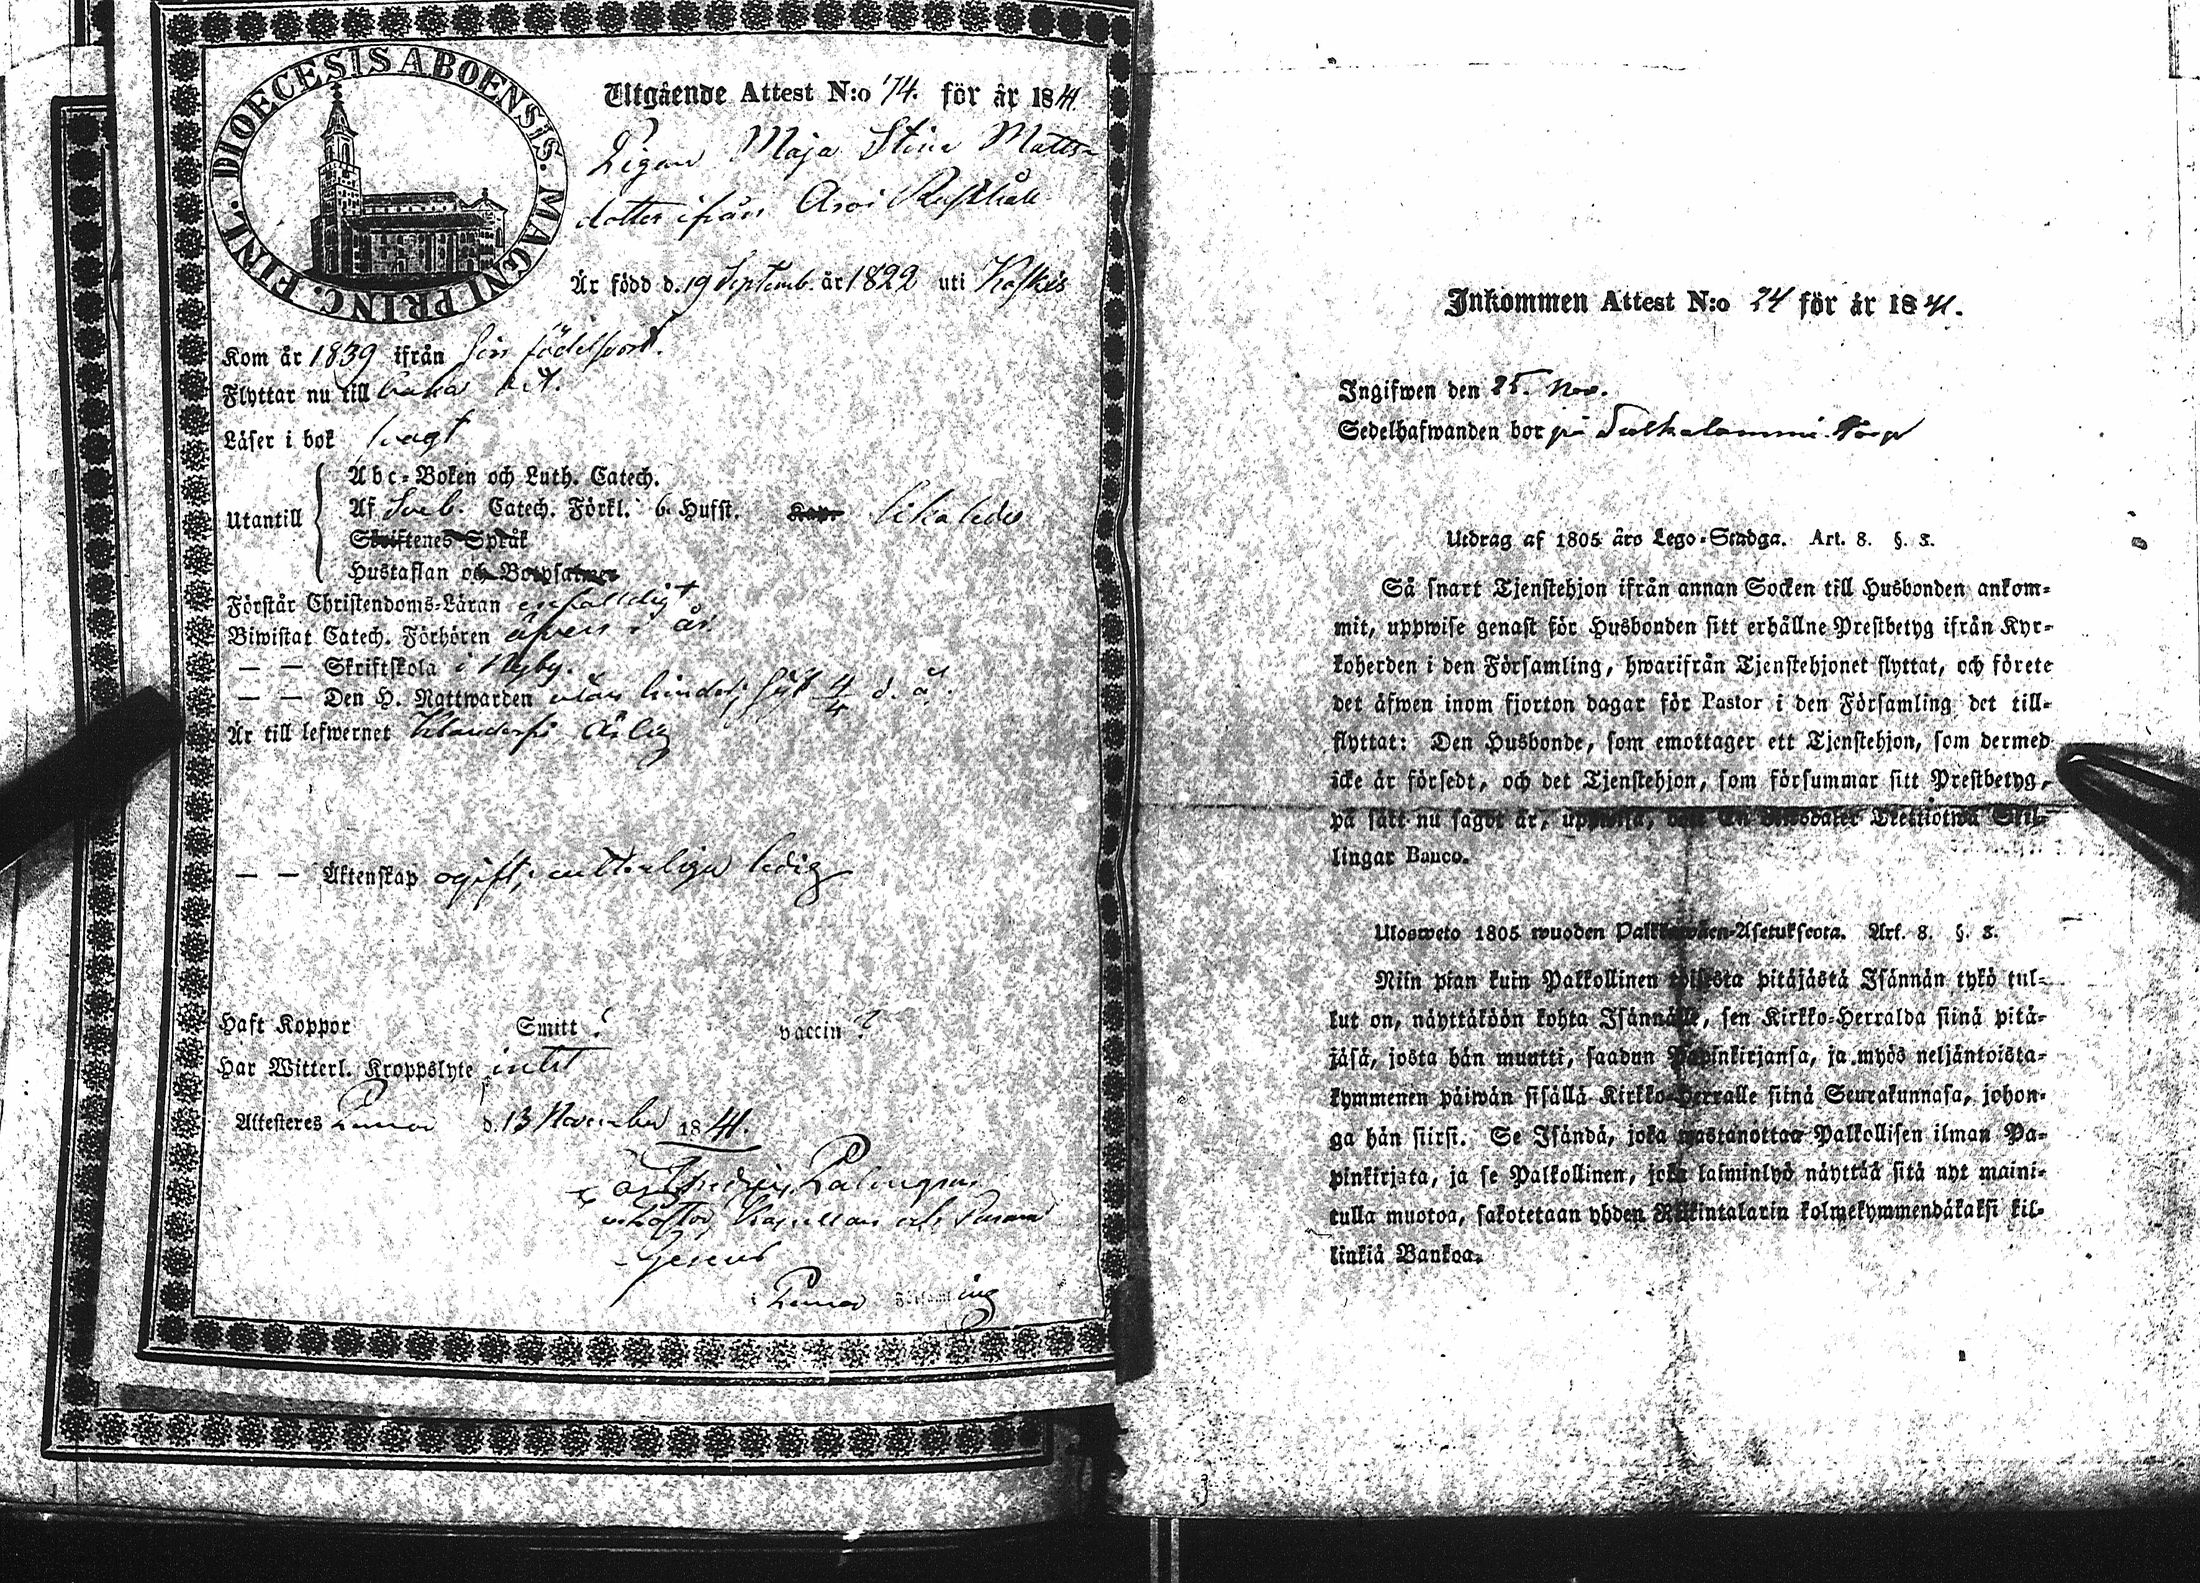 DIOECESIS ABOENSIS. MAGNI PRINC. FINL.
Utgående Attest N:o 74. för år 1841.
Pigan Maja Stina Matts-
dotter ifrån Arvi Rusthåll
Är född d. 19 Septemb. år 1822 uti Koskis
Kom år 1839 ifrån sin födelseort.
Flyttar nu till baka dit.
Läser i bok svagt
Utantill
Abc-Boken och Luth. Catech.
Af Sveb. Catech. Förkl. 6. Hufst. Kap. lika ledes
Skriftenes Språk
Hustaflan och Botpsalmer
Förstår Christendoms-Läran enfaldigt
Biwistat Catech. Förhören äfven i år.
— — Skriftskola i Nyby.
— — Den H. Nattwarden utan hinder, sist 4/4 d. å.
Är till lefwernet Klanderfri ärlig
— — Äktenskap ogift; witterligen ledig
Haft Koppor Smitt? vaccin?
Har Witterl. Kroppslyte intet
Attesteres Pemar d. 13 November 1841.
Palmgren
v. Pastor, Kapellan
i Pemar Församling
Inkommen Attest N:o 24 för år 1841.
Ingifwen den 25. Nov.
Sedelhafwanden bor på Torp
Utdrag af 1805 års Lego-Stadga. Art. 8. §. 3.
Så snart Tjenstehjon ifrån annan Socken till Husbonden ankom-
mit, uppwise genast för Husbonden sitt erhållne Prestbetyg ifrån Kyr-
koherden i den Församling, hwarifrån Tjenstehjonet flyttat, och förete
det äfwen inom fjorton dagar för Pastor i den Församling det till-
flyttat: Den Husbonde, som emottager ett Tjenstehjon, som dermed
icke är försedt, och det Tjenstehjon, som försummar sitt Prestbetyg,
på sätt nu sagdt är, uppwisa, böte En Riksdaler Trettiotwå Skil-
lingar Banco.
Ulosweto 1805 wuoden Palkkawäen-Asetuksesta. Art. 8. §. 3.
Niin pian kuin Palkollinen toisesta pitäjästä Isännän tykö tul-
lut on, näyttäköön kohta Isännälle, sen Kirkko-Herralda siinä pitä-
jäsä, josta hän muutti, saadun Papinkirjansa, ja myös neljäntoista-
kymmenen päiwän sisällä Kirkko-Herralle siinä Seurakunnasa, johon-
ga hän siirsi. Se Isändä, joka wastanottaa Palkollisen ilman Pa-
pinkirjata, ja se Palkollinen, joka laiminlyö näyttää sitä nyt maini-
tulla muotoa, sakotetaan yhden Riikintalarin kolmekymmendäkaksi kil-
linkiä Bankoa.